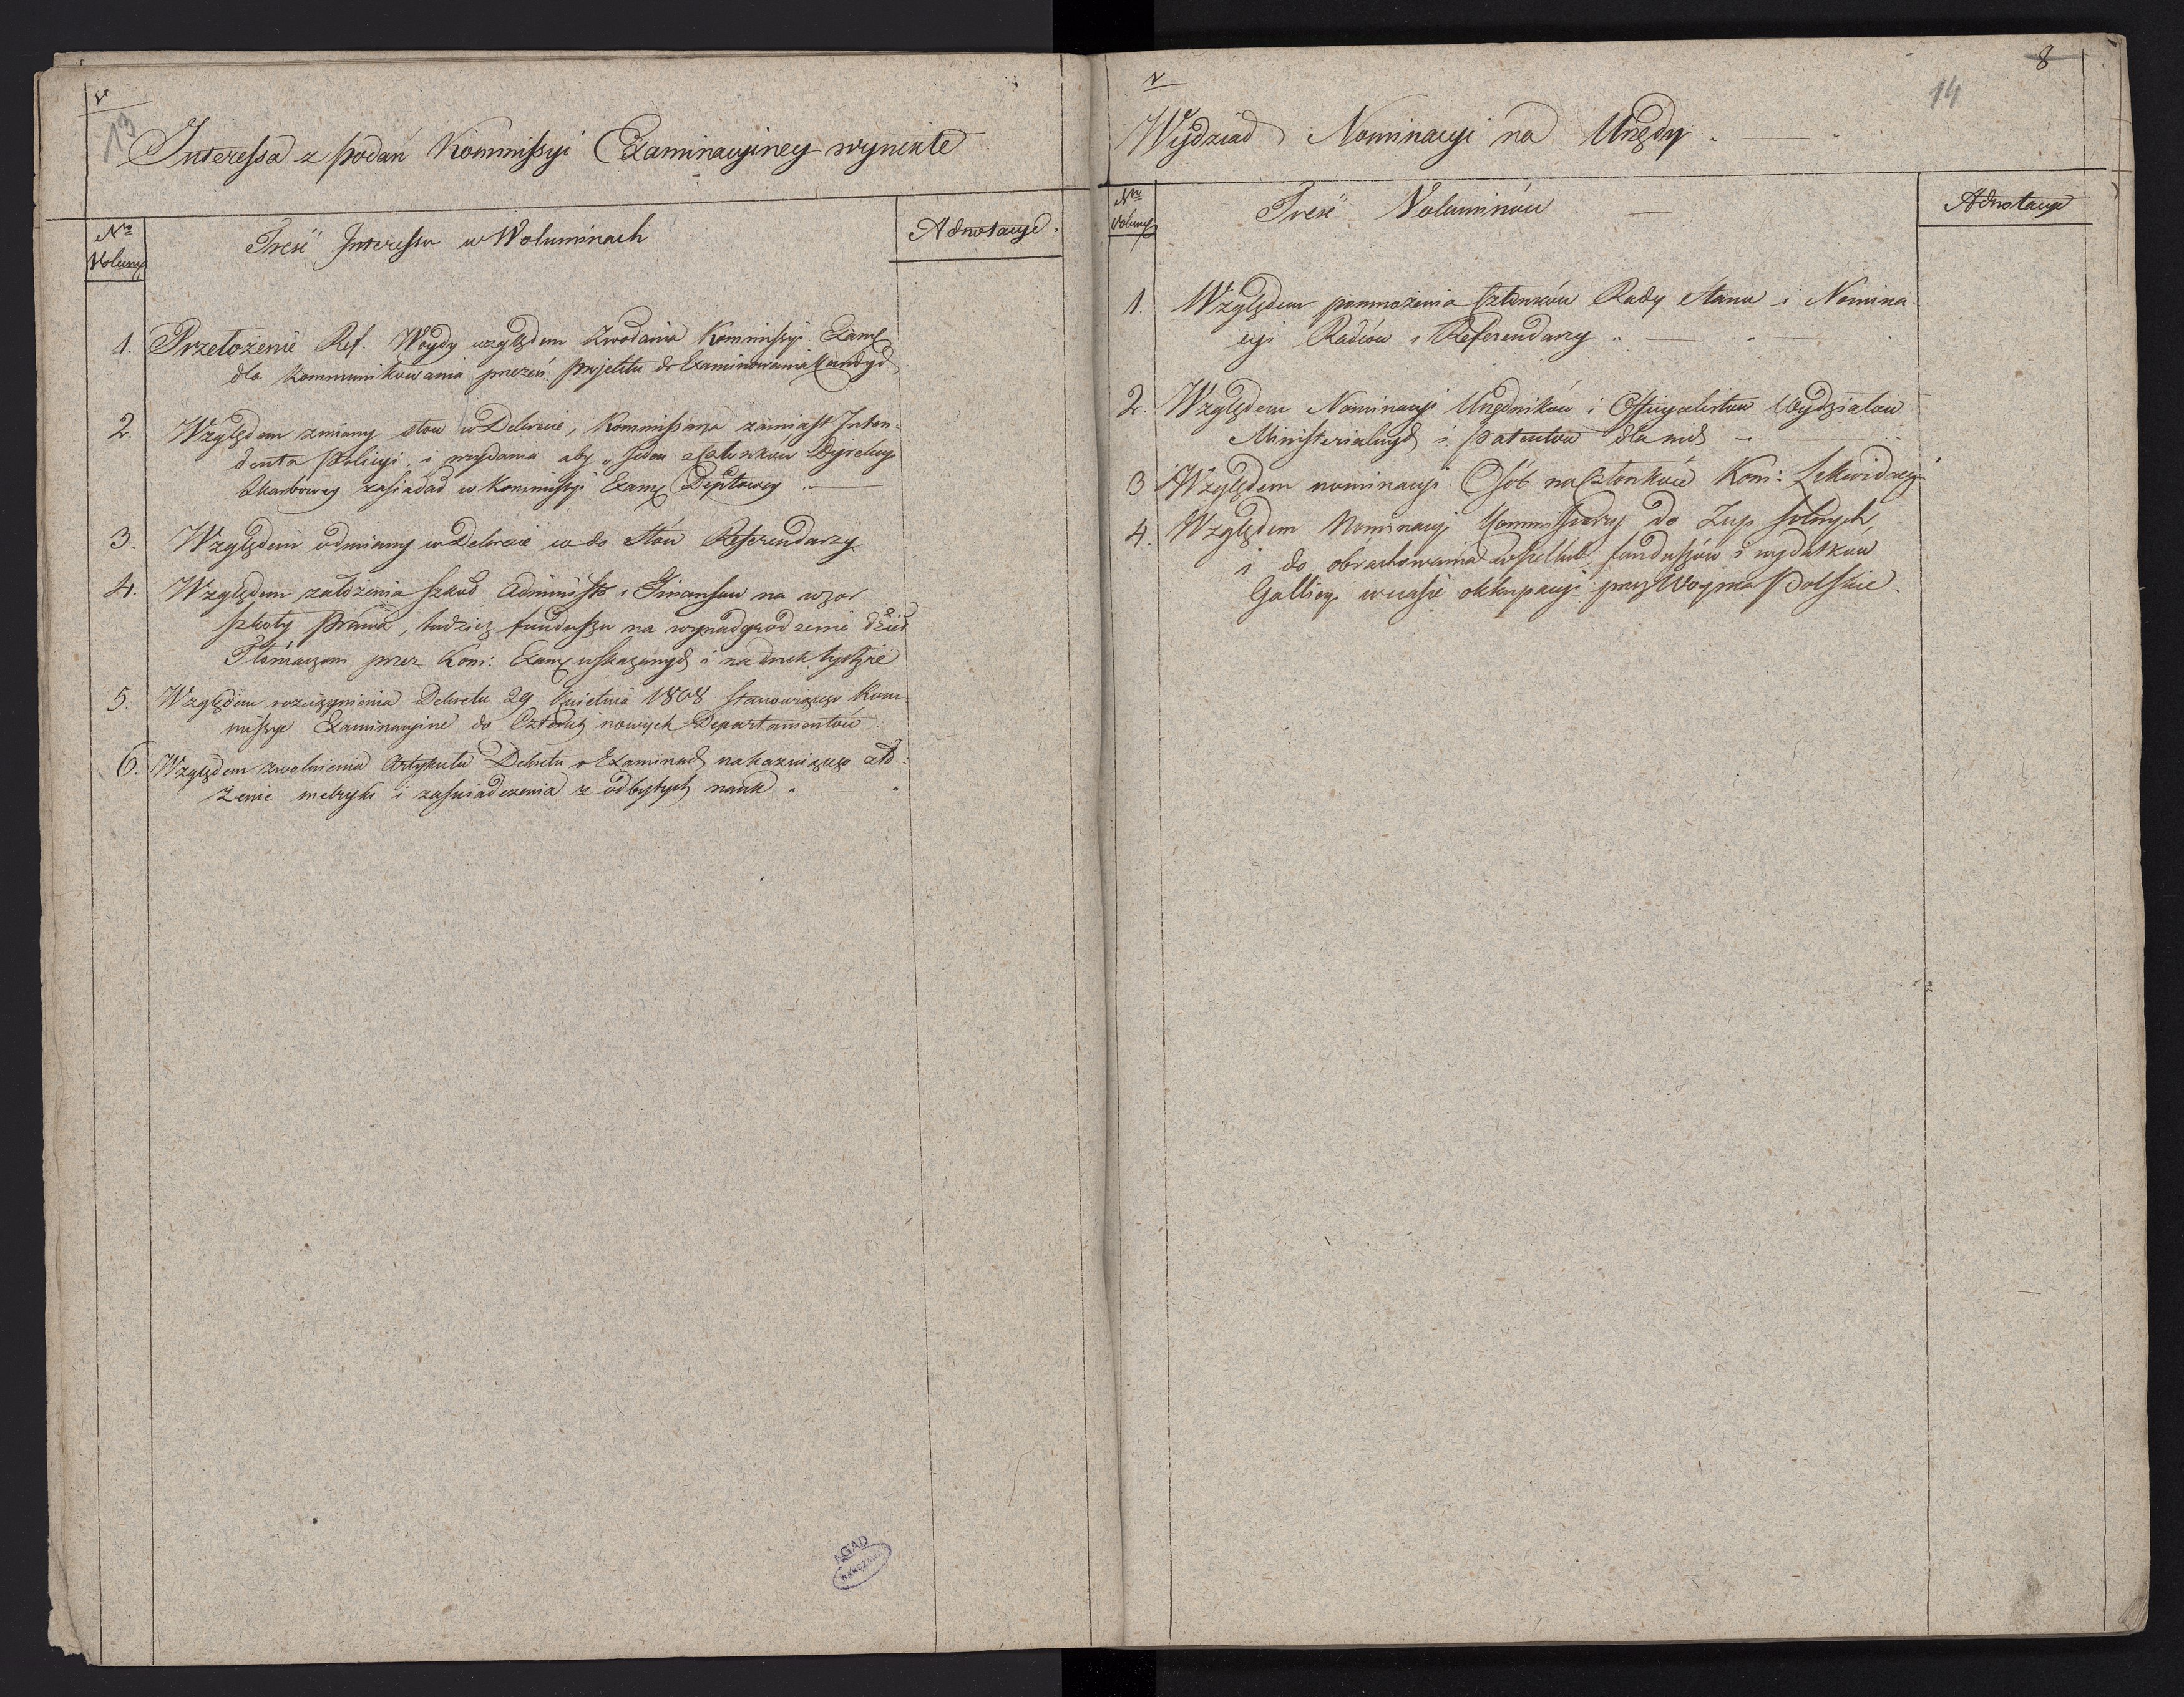 v
13
Interessa z podań Kommissyi Examinacyiney wynikłe
Nro
Volum
Treść Interessu w Woluminach
Adnotacye.
1. Przełożenie Ref. Woydy względem zwołania Kommissyi Exam
dla kommunikowania przezeń projektu do Examinowania Kandyd
2. Względem zmiany słow w Dekrecie, Kommissarza zamiast Inten-
denta Policyi, i przydania aby „jeden z Członkow Dyrekcyi
Skarbowey zasiadał w Kommissyi Exam Depttowey
3. Względem odmiany w Dekrecie co do Słów Referendarzy
4. Względem założenia szkoł Administr i Finansow na wzor
szkoły Prawa, tudzież funduszu na wynadgrodzenie dzieł
Tłómaczom przez Kom: Exam wskazanych i na druk tychże
5. Względem rozciągnienia Dekretu 29 Kwietnia 1808 stanowiącego Kom-
missye Examinacyine do Czterech nowych Departamentów
6. Względem zwolnienia Artykułu Dekretu o Examinach nakazuiącego zło-
żenie metryki i zaświadczenia z odbytych nauk
AGAD
WARSZAWA
v
8
14
Wydział Nominacyi na Urzędy
Nro
Volum
Treść Voluminów
Adnotacye
1. Względem pomnożenia Członków Rady Stanu i Nomina-
cyi Radców i Referendarzy
2. Względem Nominacyi Urzędnikow i Officyalistow Wydziałow
Ministerialnych i patentow dla nich
3 Względem nominacyi Osób na Członków Kom: Likwidacyi
4. Względem Nominacyi Kommissarzy do Żup solnych,
i do obrachowania wszelkich funduszów i wydatkow
Gallicyi w czasie okkupacyi przez Woyska Polskie.